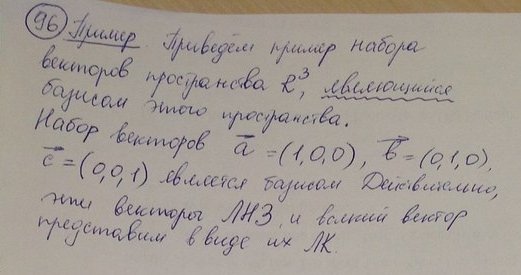 96 Пример. Приведём пример набора
векторов пространства R³, являющийся
базисом этого пространства.
Набор векторов a⃗ = (1,0,0), b⃗ = (0,1,0),
c⃗ = (0,0,1) является базисом Действительно,
эти векторы ЛНЗ, и всякий вектор
представим в виде их ЛК.